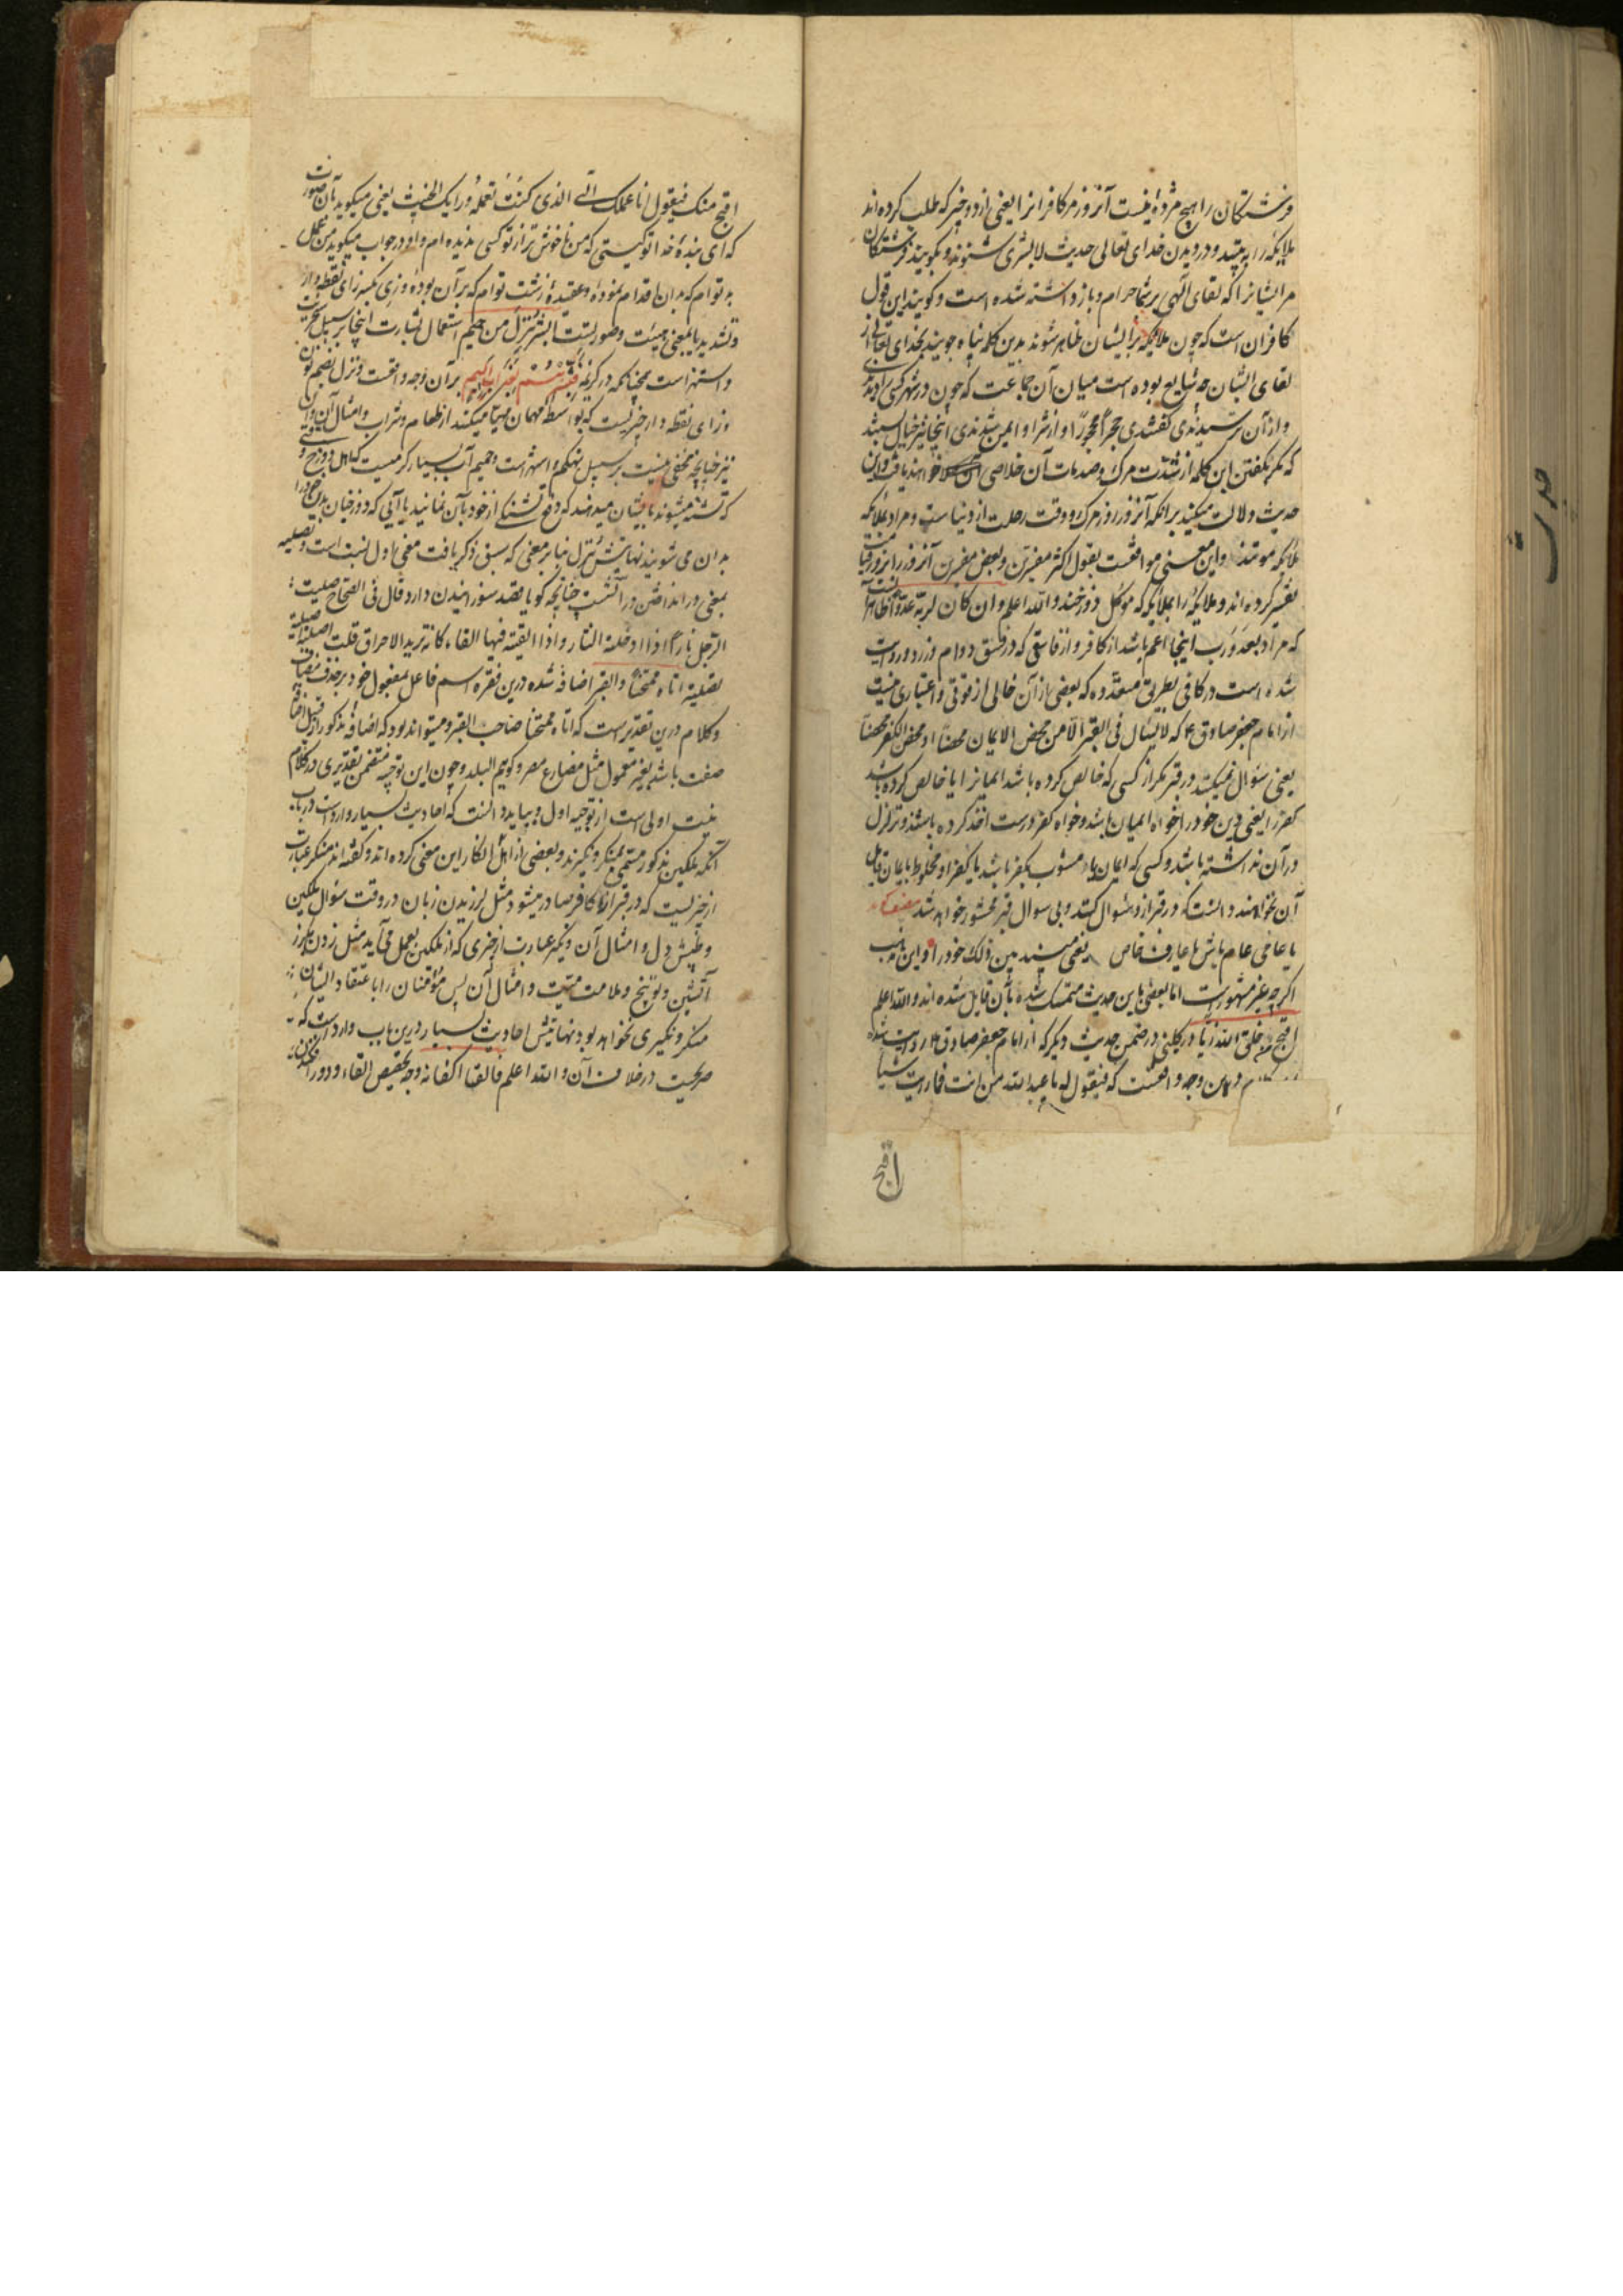 فرشتگان را هیچ مژده نیست آنروز مر کافرانرا یعنی از دو خیر که طلب کرده اند
ملایکه را به بینند و در دیدن خدای تعالی حدیث لا بشری شنوند و بگویند فرشتگان
مر ایشانرا که لقای الهی بر شما حرام و باز داشته شده است و گویند این قول
کافران است که چون ملایکه بر ایشان ظاهر شوند بدین کلمه پناه جویند بخدای تعالی از
لقای ایشان چه شایع بوده است میان آن جماعت که چون در شهر کسی را دیدندی
و از آن ترسیدندی گفتندی حجرا محجورا و از شر او ایمن شدندی اینجا نیز خیال بستند
که مگر بگفتن این کلمه از شدت مرگ و صدمات آن خلاصی خواهند یافت و این
حدیث دلالت میکند برانکه آنروز روز مرگ و وقت رحلت از دنیاست و مراد بملائکه
ملائکه موتند و این معنی موافقست بقول اکثر مفسرین و بعض مفسرین آنروز را بروز قیامت
تفسیر کرده اند و ملایکه را بملایکه که موکل دوزخند والله اعلم وان کان لربه عدوا ظاهر آنست
که مراد بعدو رب اینجا اعم باشد از کافر و از فاسقی که در فسق دوام ورزد و روایت
شده است در کافی بطریق متعدده که بعضی از آن خالی از قوتی و اعتباری نیست
از امام جعفر صادق ع که لا یسئل فی القبر الا من محض الایمان محضا او محض الکفر محضا
یعنی سؤال نمیکنند در قبر مگر از کسی که خالص کرده باشد ایمانرا یا خالص کرده باشد
کفر را یعنی دین خود را خواه ایمان باشد و خواه کفر درست اخذ کرده باشد و تزلزل
در آن نداشته باشد و کسی که ایمان مشوب بکفر باشد یا کفر او مخلوط بایمان قابل
آن نخواهند دانست که در قبر ازو سؤال کنند و بی سوال قبر محشور خواهد شد
یا عامی عام باش یا عارف خاص بین ذلک خود را و این مذهب
اگرچه غیر مشهور است اما بعضی باین حدیث متمسک شده بآن قایل شده اند والله اعلم
اقبح من خلق الله زیا در کلینی در ضمن حدیث دیگر که از امام جعفر صادق ع روایت شده
وجه واقعست که فیقول له یا عبد الله من انت فما رایت شیئا
اقبح
اقبح منک فیقول انا عملک السیئ الذی کنت تعمله ورایک الخبیث یعنی میگوید بآن صورت
که ای بنده خدا تو کیستی که من ناخوش تر از تو کسی ندیده ام و او در جواب میگوید من عمل
بد توام که بدان اقدام نموده و عقیده زشت توام که بر آن بوده و زی بکسر زای نقطه دار
و تشدید یا بمعنی هیئت و صورتست ابشر بنزل من حمیم استعمال بشارت اینجا بر سبیل سخریت
و استهزا است همچنانکه در کریمه فبشرهم بعذاب الیم بر آن وجه واقعست و نزل بضم نون
و زای نقطه دار چیزیست که بواسطه مهمان مهیا میکنند از طعام و شراب و امثال آن و این
نیز چنانچه مخفی نیست بر سبیل تهکم و استهزاست و حمیم آب بسیار گرمیست که اهل دوزخ
که تشنه میشوند بایشان میدهند که دفع تشنگی از خود بآن نمایند یا آبی که دوزخیان بدن خود را
بدان می شویند نهایتش نزل بنا بر معنی که سبق ذکر یافت معنی اول انسب است و تصلیه
بمعنی در انداختن در آتشست چنانچه گویا قصد سوزانیدن دارد قال فی الصحاح صلیت
الرجل نارا اذا ادخلته النار و اذا القیته فیها القاء کانه ترید الاحراق قلت اصلیته
تصلیة اتاه ممتحنا القبر اضافه شده درین فقره اسم فاعل بمفعول خود بر حذف مضاف
و کلام درین تقدیر است که اتاه ممتحنا صاحب القبر و میتواند بود که اضافه مذکور از قبیل اضافه
صفت باشد بغیر معمول مثل مضارع مصر و کریم البلد و چون این توجیه متضمن تقدیری در کلام
نیست اولی است از توجیه اول و بباید دانست که احادیث بسیار وارد است در باب
آنکه ملکین مذکور مسمی بمنکر و نکیرند و بعضی از اهل انکار این معنی کرده اند و گفته اند منکر عبارت
از چیزیست که در قبر از کافر صادر میشود مثل لرزیدن زبان در وقت سؤال ملکین
و طپش دل و امثال آن و نکیر عبارت از چیزی که از ملکین بعمل می آید مثل زدن بگرز
آتشین و توبیخ و ملامت میت و امثال آن پس مؤمنان را باعتقاد ایشان
منکر و نکیری نخواهد بود نهایتش احادیث بسیار درین باب وارد است که
صریحست در خلاف آن والله اعلم فالقیا اکفانه وجه تخصیص القاء و دور افکندن
حدیث